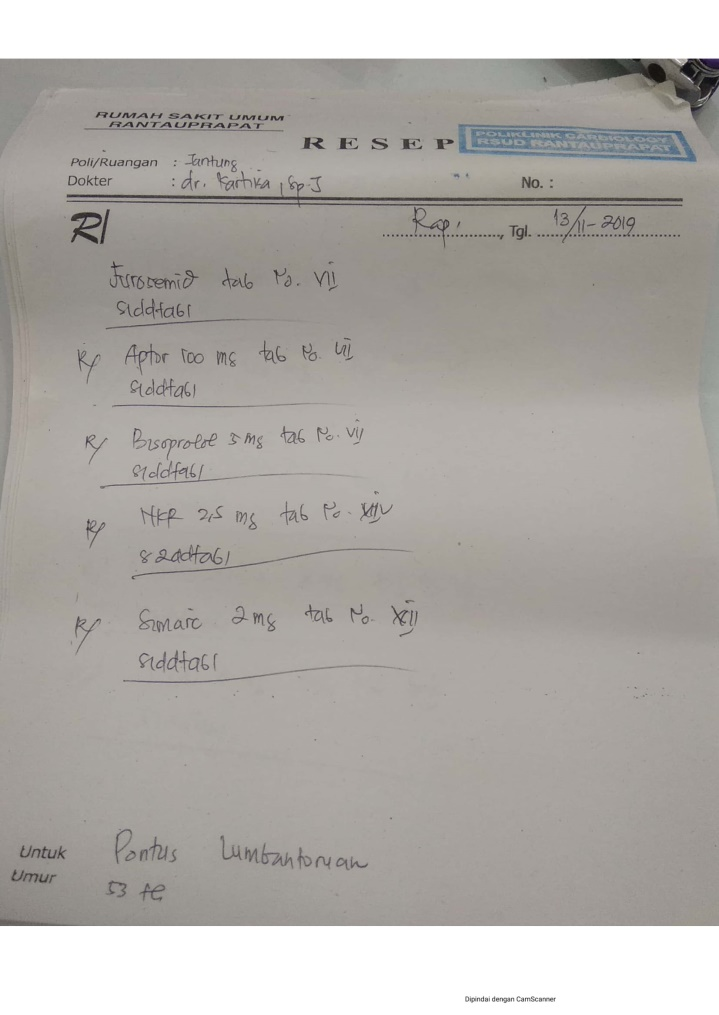 RUMAH SAKIT UMUM
RANTAUPRAPAT
RESEP
POLIKLINIK CARDIOLOGY
RSUD RANTAUPRAPAT
Poli/Ruangan : Jantung
Dokter : dr. Kartika, Sp.J
No. :
R/
Rap, Tgl. 13/11-2019
Furosemid tab No. VII
S1ddtab1
R/ Aptor 100 mg tab No. VII
S1ddtab1
R/ Bisoprolol 5 mg tab No. VII
S1ddtab1
R/ NKR 2,5 mg tab No.
S2ddtab1
R/ Simarc 2 mg tab No.
S1ddtab1
Untuk Pontus Lumbantoruan
Umur 53
Dipindai dengan CamScanner